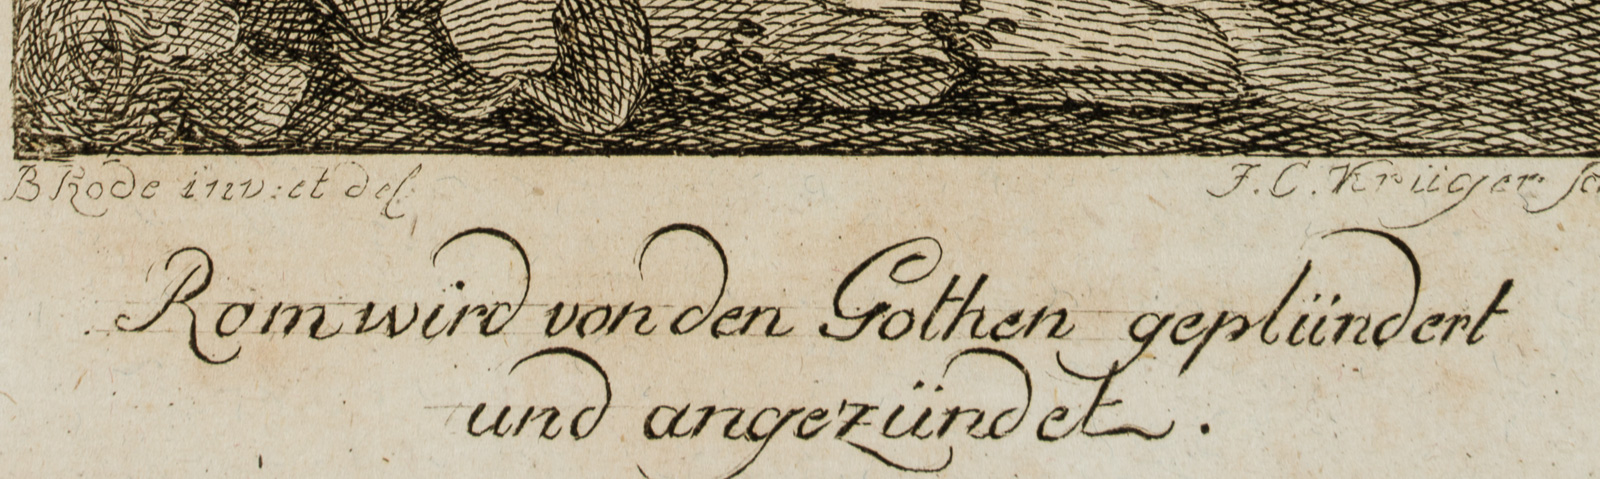 B Rode inv: et del
J. C. Krüger sc
Rom wird von den Gothen geplündert
und angezündet.